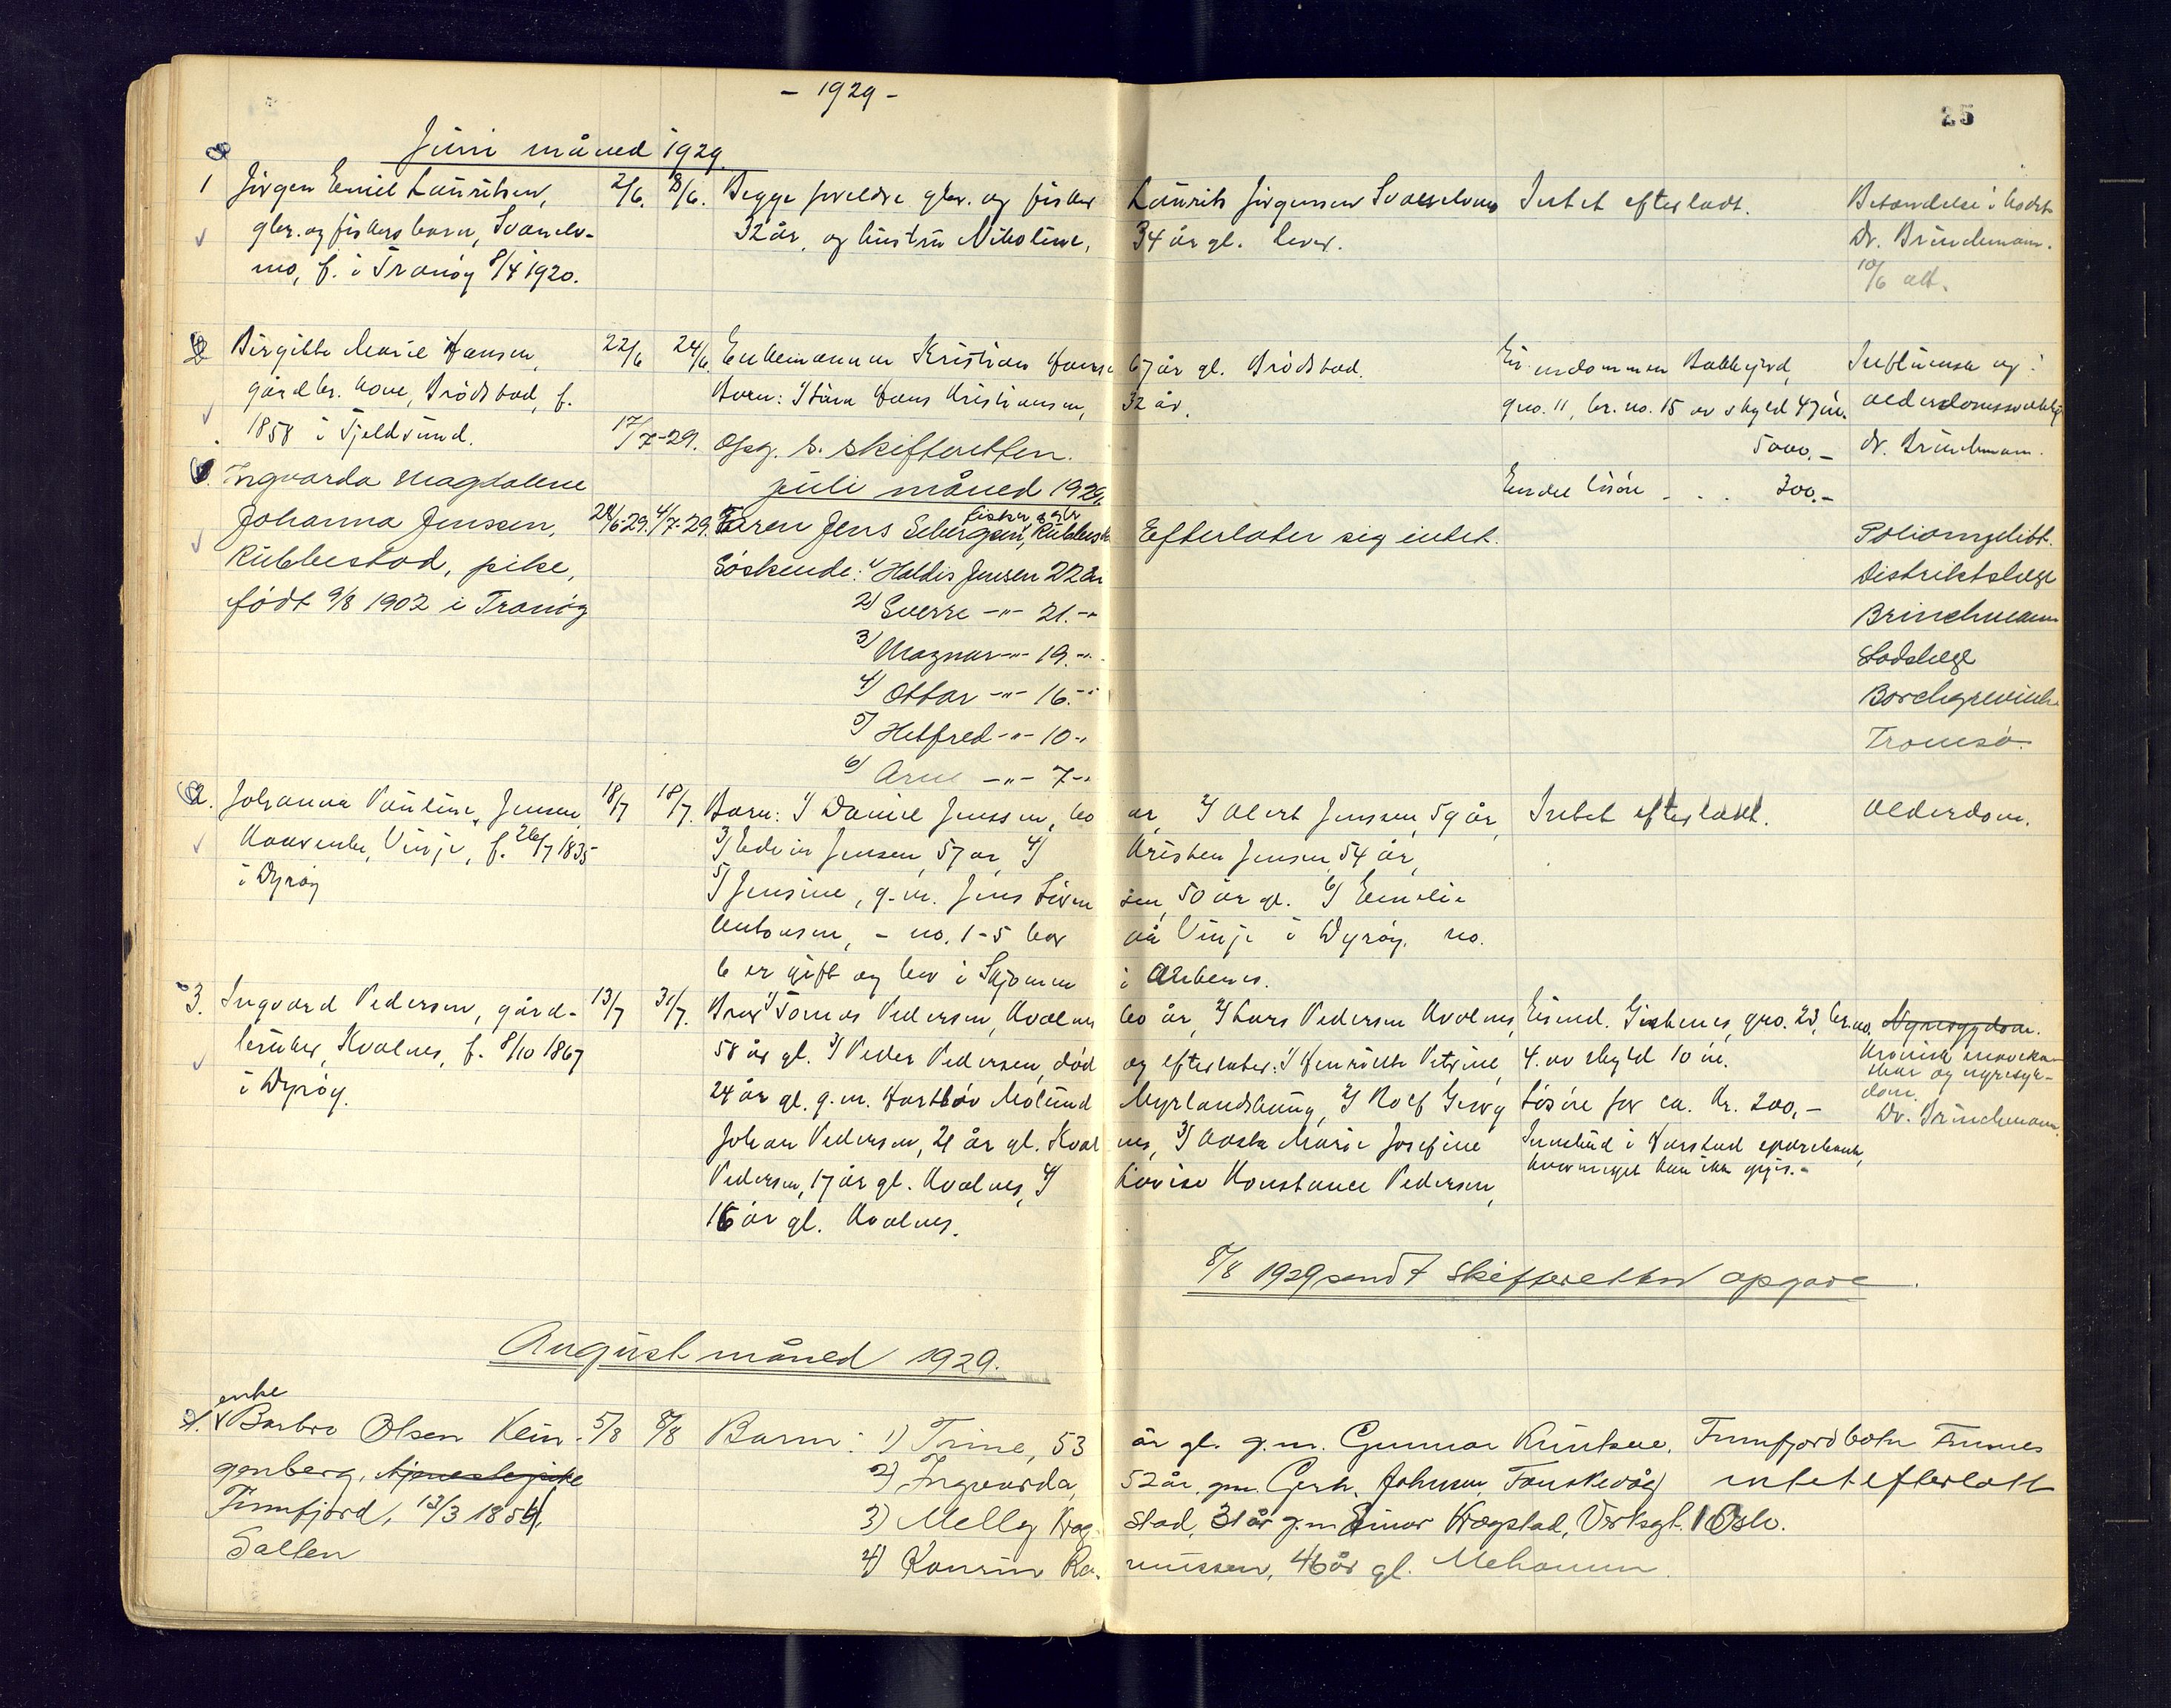 - 1929 -
25
Juni måned 1929.
1 Jörgen Emil Lauritsen, 2/6. 8/6. Begge foreldre gbr. og fisker Laurits Jörgensen Svanelvmo Intet efterladt. Betændelse i hodet
gbr. og fiskers barn, Svanelv- 32 år, og hustru Nikoline, 34 år gl. lever. Dr. Brinchmann.
mo, f. i Tranöy 8/4 1920. 10/6 att.
2 Birgitte Marie Hansen, 22/6 24/6. Enkemannen Kristian Hansen 67 år gl. Brödstad. Eiendommen Bakkejord, Influensa og
gårdbr. kone, Brödstad, f. Barn: 1) Hans Kristiansen, 32 år. gno. 11, br. no. 15 av skyld 47 öre. alderdomssvakhet
1858 i Tjeldsund. 17/7-29. Opg. s. skifteretten. 5000.- dr. Brinchmann.
Endel lösöre - . . 300.-
juli måned 1929.
1. Ingvarda Magdalene
Johanna Jenssen, 28/6-29. 4/7-29. Faren Jens Seberg Jensen, fisker & gbr Rubbestad Efterlater sig intet. Poliomyelitt.
Rubbestad, pike, Söskende: 1) Haldis Jensen 22 år Distriktslæge
födt 9/8 1902 i Tranöy 2) Sverre -"- 21.-" Brinchmann
3) Magnar -"- 19.-" Stadslæge
4) Ottar -"- 16.-" Borchgrevink
5) Helfred -"- 10-" Tromsö.
6) Arne -"- 7-"
2. Johanna Pauline Jensen, 18/7 18/7. Barn: 1) Daniel Jenssen, 60 år, 2) Albert Jenssen, 59 år, Intet efterladt. Alderdom.
Vinje, f. 26/7 1835 3) Edvin Jensen, 57 år, 4) Kristen Jensen, 54 år,
i Dyröy 5) Jensine, g.m. Jens 50 år gl. 6) Emelie
Antonsen, - no. 1-5 bor på Vinje i Dyröy, no.
6 er gift og bor i Skjomen i Ankenes.
3. Ingvard Pedersen, gård- 13/7 31/7. Bror 1) Tomas Pedersen, Kvalnes 60 år, 2) Lars Pedersen Kvalnes, Eiend. gno. 23, br. no. Nyresygdom.
bruker, Kvalnes, f. 8/10 1867 58 år gl. 3) Peder Pedersen, död og efterlater: 1) Henriette Petrine, 4. av skyld 10 öre. Kronisk
i Dyröy. 24 år gl. g.m. Moland Myrlandshaug, 2) Rolf Georg Lösöre for ca. kr. 200,- og nyresyk-
dom.
Dr. Brinchmann.
Johan Pedersen, 21 år gl. Kvalnes, 3) Aasta Marie Josefine Innskud i Harstad sparebank,
Pedersen, 17 år gl. Kvalnes, 4) Lovise Konstance Pedersen, hvormeget kan ikke opgis.-
16 år gl. Kvalnes.
8/8 1929 sendt Skifteretten opgave.
August måned 1929.
enke
1. Barbro Olsen Klin- 5/8 8/8 Barn: 1) Trine, 53 år gl. g.m. Gunnar Knutsen, Finnfjordbotn
genberg, 2) Ingvarda, 52 år, gm. Gerh. Johnsen, intet efterlatt
Finnfjord, 13/3 1854, 3) Melly Krogstad, 31 år g.m Einar Krogstad, Verksgt. 1 Oslo.
Salten 4) Rasmussen, 46 år gl. Mehamn.